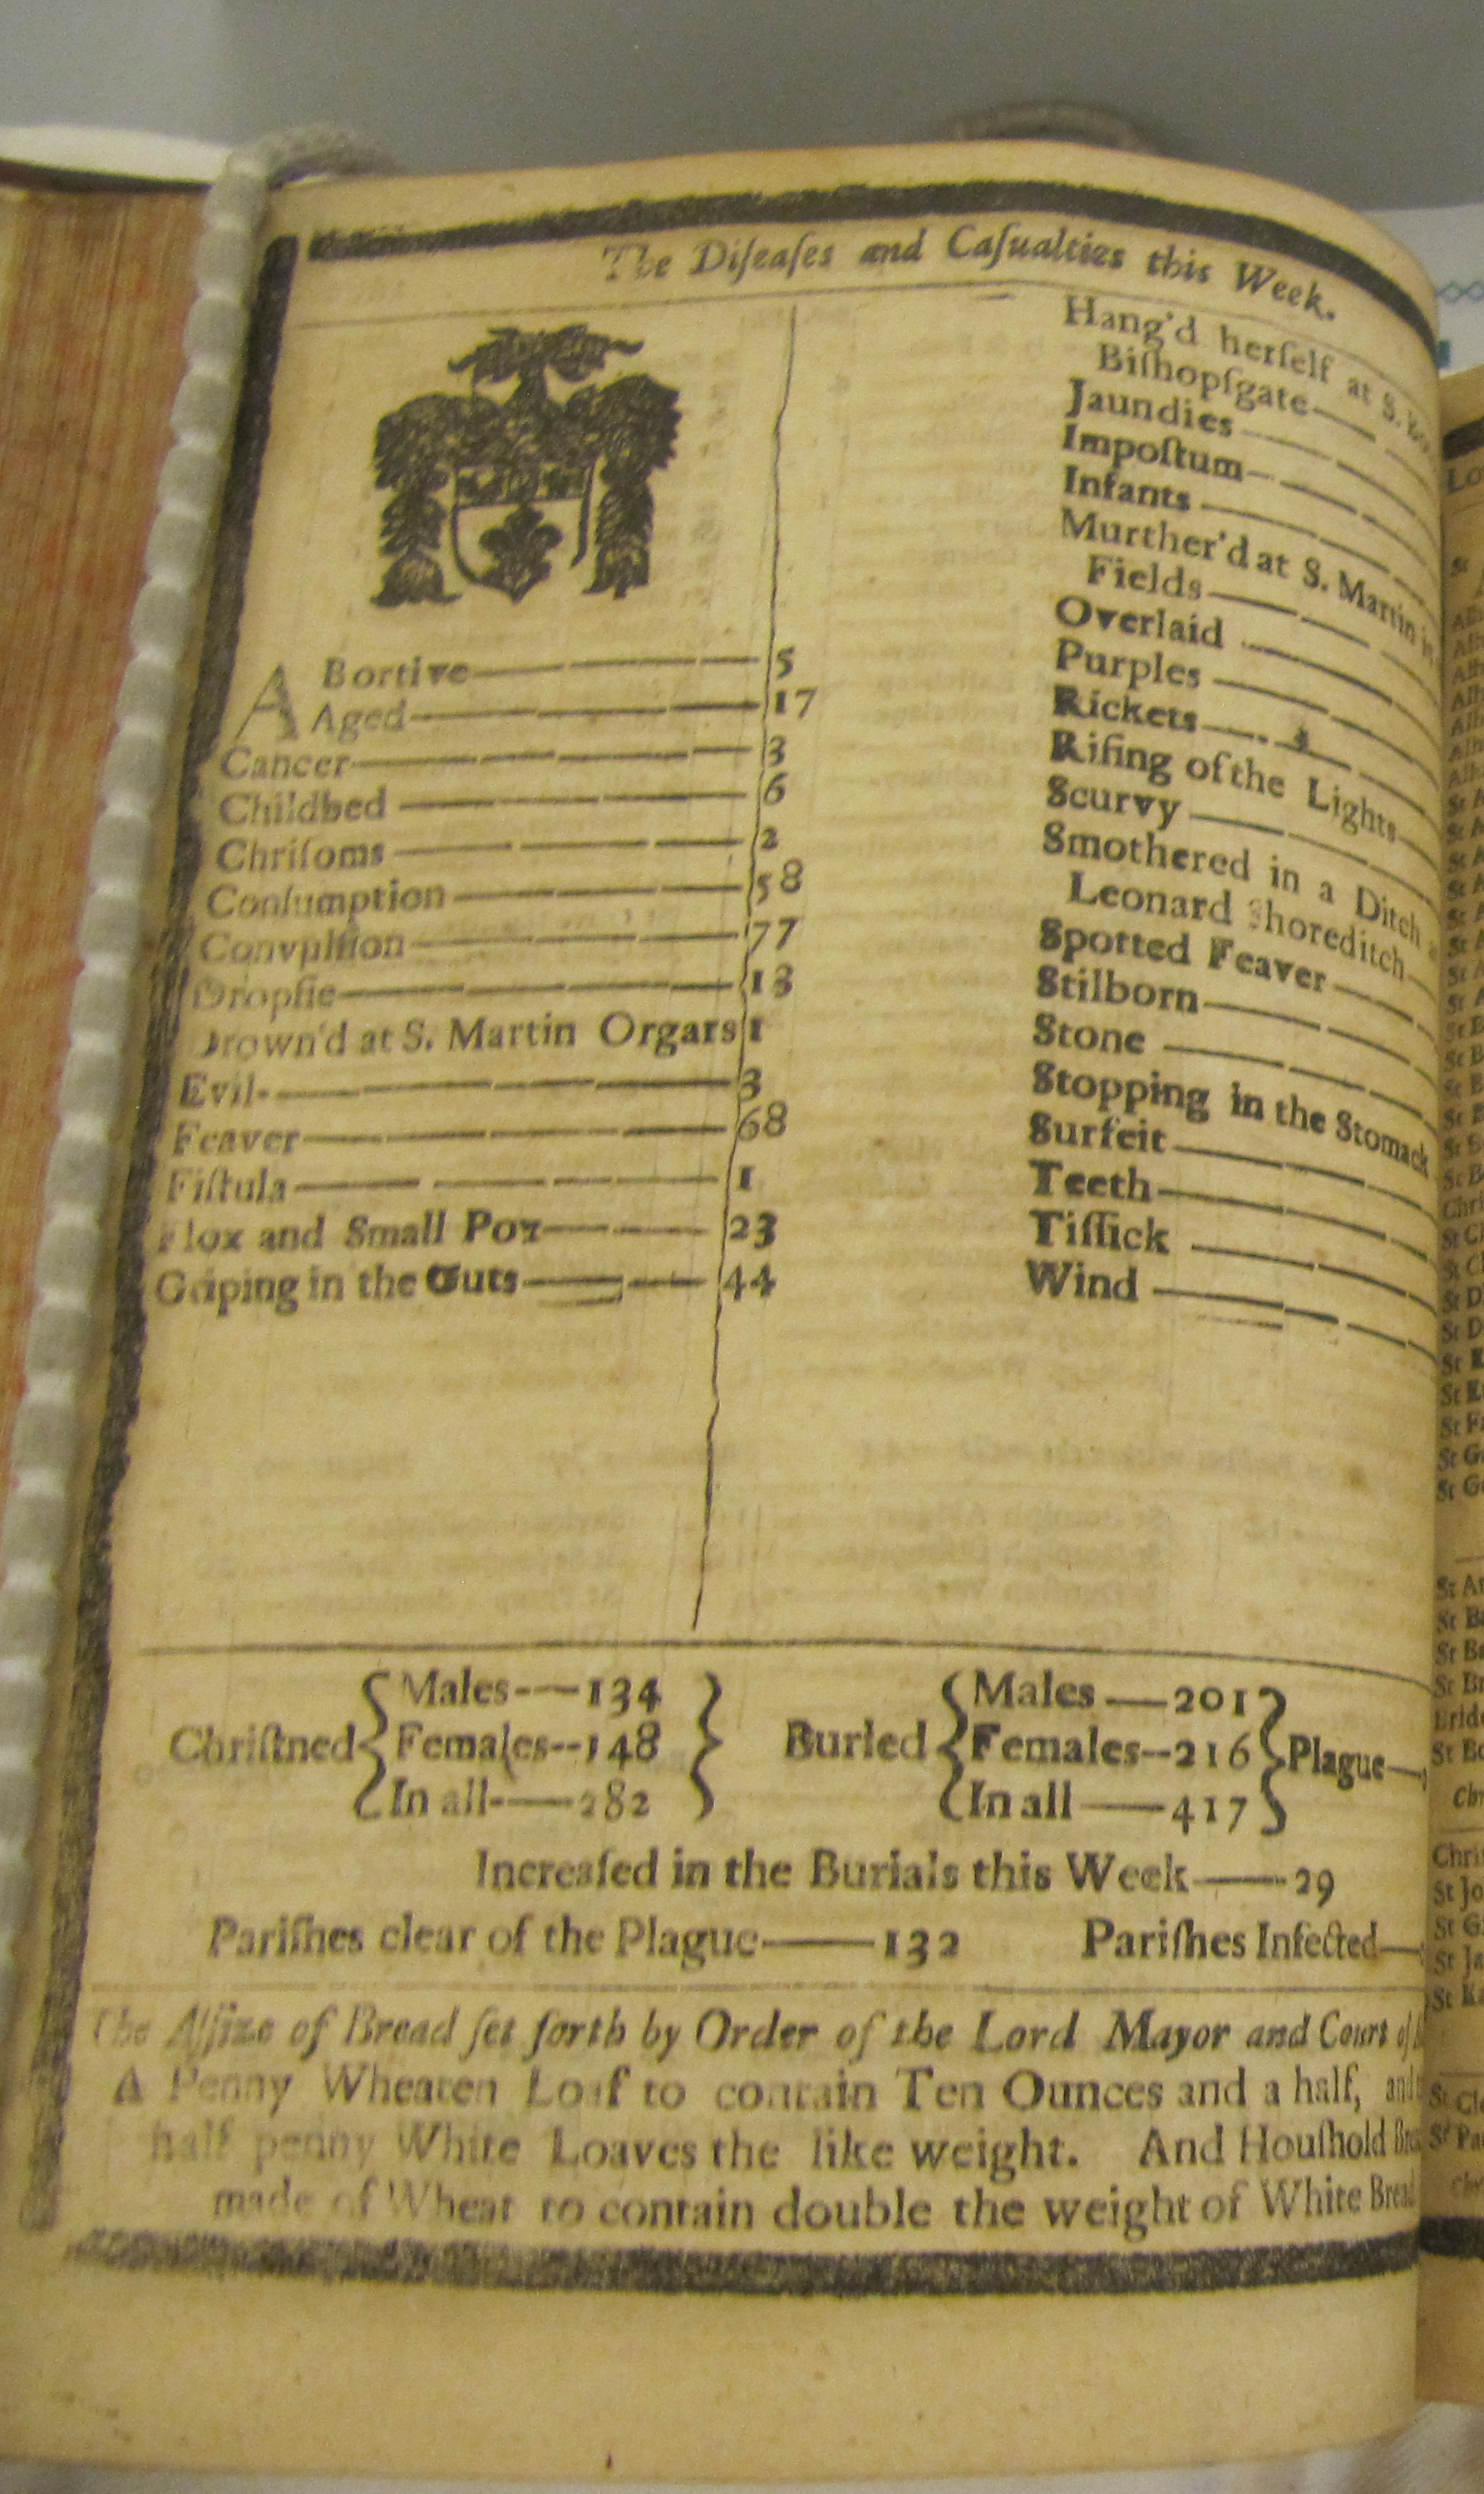 The Diſeaſes and Caſualties this Week.
ABortive 5
Aged 17
Cancer 3
Childbed 6
Chriſoms 2
Conſumption 58
Convulſion 77
Dropſie 13
Drown'd at S. Martin Orgars 1
Evil 3
Feaver 68
Fiſtula 1
Flox and Small Pox 23
Griping in the Guts 44
Hang'd herſelf at S.
Biſhopſgate
Jaundies
Impoſtum
Infants
Murther'd at S. Martin in
Fields
Overlaid
Purples
Rickets
Riſing of the Lights
Scurvy
Smothered in a Ditch
Leonard Shoreditch
Spotted Feaver
Stilborn
Stone
Stopping in the Stomack
Surfeit
Teeth
Tiſſick
Wind
Chriſtned { Males 134 } Buried { Males 201 } Plague
Females 148 Females 216
In all 282 In all 417
Increaſed in the Burials this Week 29
Pariſhes clear of the Plague 132 Pariſhes Infected
The Aſſize of Bread ſet forth by Order of the Lord Mayor and Court of
A Penny Wheaten Loaf to contain Ten Ounces and a half, and
half penny White Loaves the like weight. And Houſhold
made of Wheat to contain double the weight of White Bread